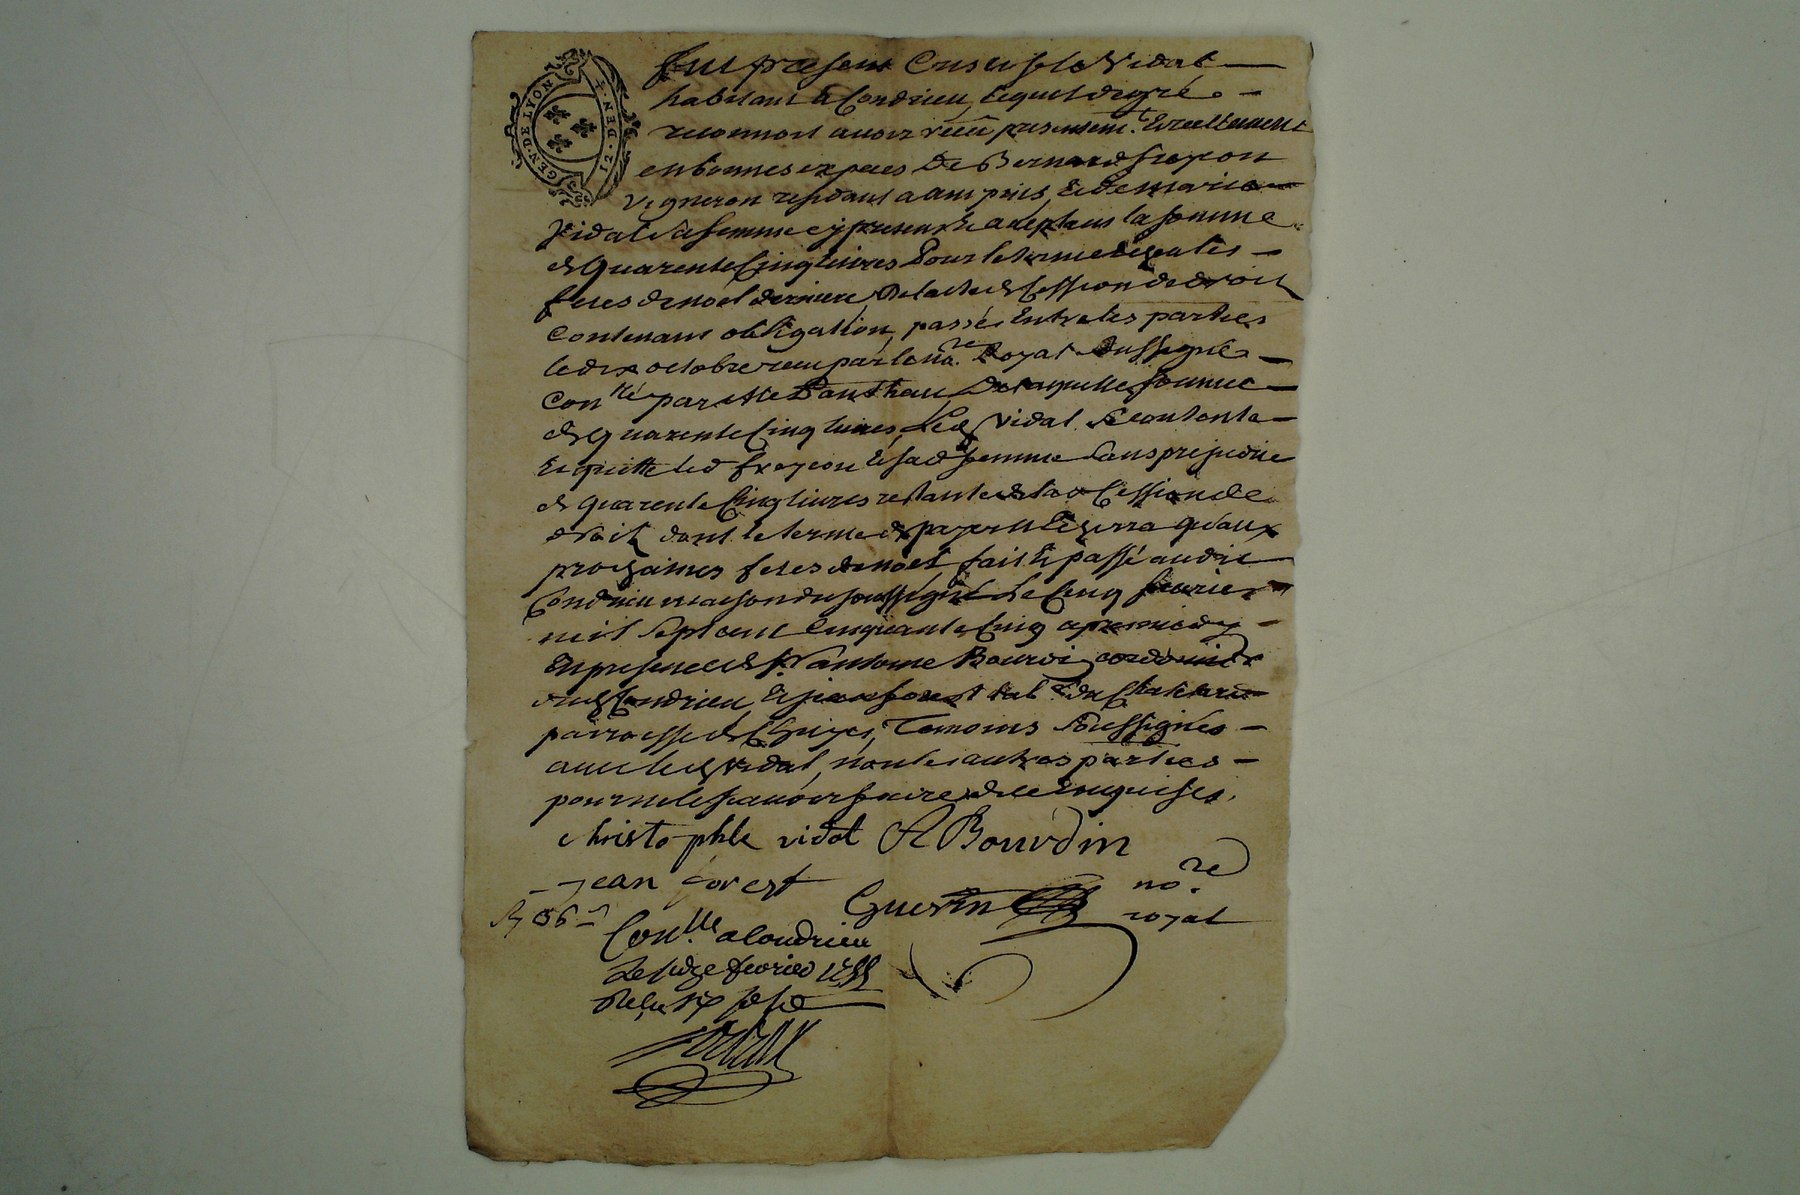 GEN · DE LYON · 12 · DEN · 4
fut present Cristofle Vidal
habitant a Condrieu, lequel de gré
reconnoit avoir receu presentemt. Et reellement
en bonnes especes De Bernard frezon
vigneron residant a ampuis, Et de marie
Vidal sa femme cy presents Et acceptans la somme
de Quarente Cinq livres Pour le terme echu a les
festes de noel derniere, De lacte de Cession de droit
contenant obligation, passée Entre les parties
le dix octobre receu par le nore. Royal soussigné
Conllé par Dantheau, De laquelle somme
de quarente Cinq livres, Led Vidal se contente
Et quitte led frezon Et sad femme sans prejudice
de quarente Cinq livres restante de lad Cession de
droit dont le terme de payer n'Echerra qu'aux
prochaines festes de noel fait Et passé audit
Condrieu maison du soussigné Le Cinq fevrier
mil sept cent Cinquante Cinq apres midy
En presence de Sr. antoine Bourdin cordonnier
dud Condrieu Et jean forest habt. du
parroisse de Chuyer, Temoins Soussignés
avec led Vidal, non les autres parties
pour ne le sçavoir faire de ce Enquises.
christophle vidal A Bourdin
jean forest
Guerin nore. royal
Conlle. a Condrieu
Le seize fevrier 1755
Reçu six sols